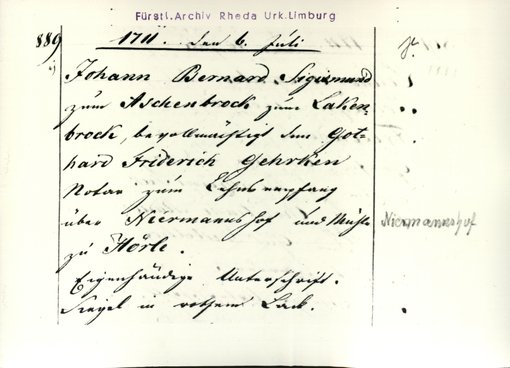 Fürstl. Archiv Rheda Urk. Limburg
889
1711. den 6. Juli
Johann Bernard Sigismund
zum Aschenbrock zum Laken-
brock, bevollmächtigt den Got-
hard Friderich Gehrken
Notar zum Lehnsempfang
über Niermannshof und Mühle
Niermannshof
zu Hörle.
Eigenhändige Unterschrift.
Siegel in rothem Lack.